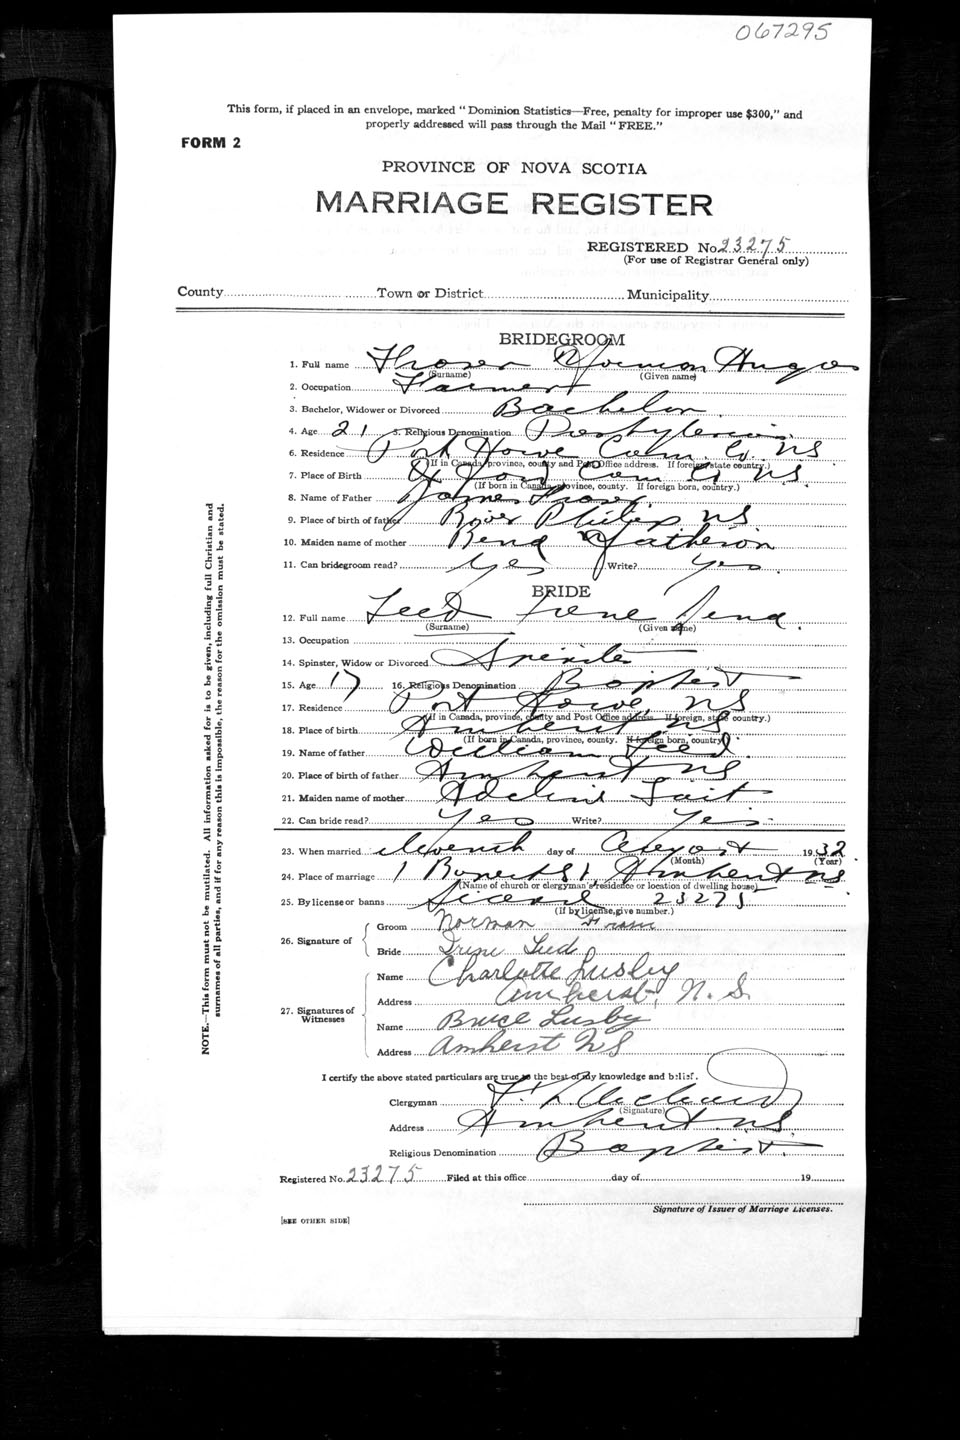 067295
This form, if placed in an envelope, marked "Dominion Statistics—Free, penalty for improper use $300," and
properly addressed will pass through the Mail "FREE."
FORM 2
PROVINCE OF NOVA SCOTIA
MARRIAGE REGISTER
REGISTERED No. 23275
(For use of Registrar General only)
County Town or District Municipality
BRIDEGROOM
1. Full name Norman
(Surname) (Given name)
2. Occupation Farmer
3. Bachelor, Widower or Divorced Bachelor
4. Age 21 5. Religious Denomination Presbyterian
6. Residence Port Howe Cum. Co. NS
(If in Canada, province, county and Post Office address. If foreign state country.)
7. Place of Birth NS.
(If born in Canada, province, county. If foreign born, country.)
8. Name of Father James
9. Place of birth of father River Philip NS
10. Maiden name of mother
11. Can bridegroom read? Yes Write? Yes.
BRIDE
12. Full name Irene
(Surname) (Given name)
13. Occupation
14. Spinster, Widow or Divorced Spinster
15. Age 17 16. Religious Denomination Baptist
17. Residence Port Howe, NS
(If in Canada, province, county and Post Office address. If foreign, state country.)
18. Place of birth Amherst NS
(If born in Canada, province, county. If foreign born, country)
19. Name of father William
20. Place of birth of father Amherst NS
21. Maiden name of mother
22. Can bride read? Yes Write? Yes
23. When married day of August 1932
(Month) (Year)
24. Place of marriage Amherst NS
(Name of church or clergyman's residence or location of dwelling house)
25. By license or banns License 23275
(If by license, give number.)
26. Signature of
Groom Norman
Bride Irene
27. Signatures of Witnesses
Name Charlotte Lusby
Address Amherst, N. S.
Name Bruce Lusby
Address Amherst NS
I certify the above stated particulars are true to the best of my knowledge and belief.
Clergyman
(Signature)
Address Amherst NS.
Religious Denomination Baptist.
Registered No. 23275 Filed at this office day of 19
Signature of Issuer of Marriage Licenses.
[SEE OTHER SIDE]
NOTE.—This form must not be mutilated. All information asked for is to be given, including full Christian and
surnames of all parties, and if for any reason this is impossible, the reason for the omission must be stated.